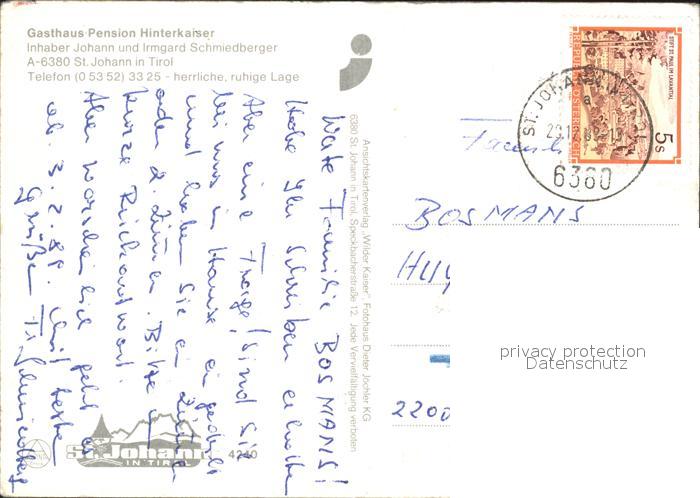 Gasthaus-Pension Hinterkaiser
Inhaber Johann und Irmgard Schmiedberger
A-6380 St. Johann in Tirol
Telefon (0 53 52) 33 25 - herrliche, ruhige Lage
Werte Familie BOSMANS!
Habe Ihr Schreiben erhalten
Aber eine Frage! Sind Sie
bei uns im Hause
und haben Sie ein Zimmer
oder 2. Zimmer. Bitte um
kurze Rückantwort.
Aber warscheinlich geht es
ab. 3.2.88. Mit besten
Grüßen
Ansichtskartenverlag „Wilder Kaiser", Fotohaus Dieter Jöchler KG
6380 St. Johann in Tirol, Speckbacherstraße 12. Jede Vervielfältigung verboten
St. Johann
IN TIROL
4240
REPUBLIK ÖSTERREICH
STIFT ST. PAUL IM LAVANTTAL
5 S
ST. JOHANN
6380
Familie
BOSMANS
HUY
2200
privacy protection
Datenschutz